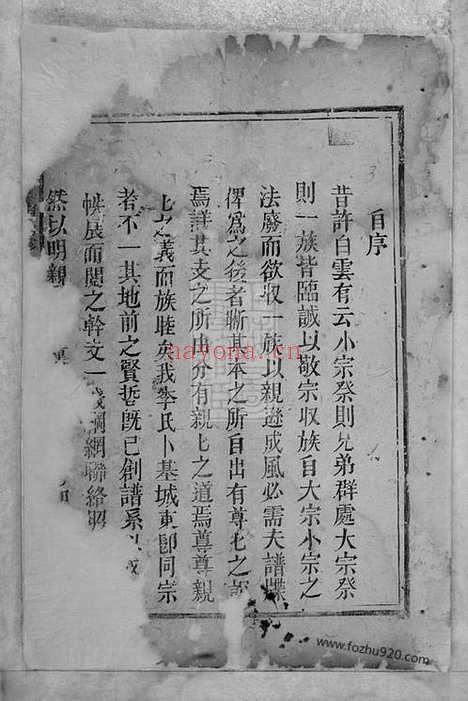 自序
昔許白雲有云小宗祭則兄弟群處大宗祭
則一族皆臨誠以敬宗收族自大宗小宗之
法廢而欲収一族以親遜成風必需夫譜牒
俾爲之後者晰其本之所自出有尊乀之
焉詳其支之所由分有親乀之道焉尊尊親
乀之義而族睦矣我李氏卜基城東
同宗
若不一其地前之賢哲既已創譜系以
帙展而閱之幹文一
綱聯絡
然以明親
nayona.cn
www.fozhu920.com